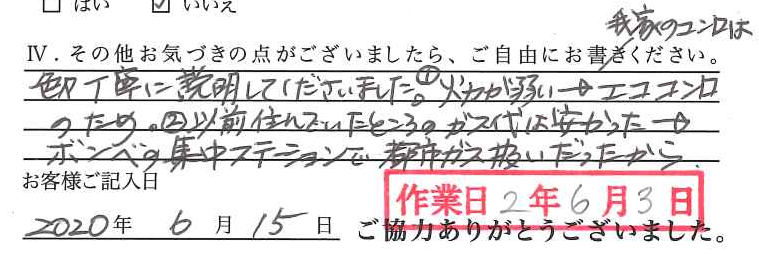 □ はい ☑ いいえ
我家のコンロは
Ⅳ．その他お気づきの点がございましたら、ご自由にお書きください。
丁寧に説明してくださいました。①火力が弱い→エココンロ
のため。②以前住んでいたところのガス代は安かった→
ボンベの集中ステーションで都市ガス扱いだったから．
お客様ご記入日
作業日 2年6月3日
2020年 6月15日 ご協力ありがとうございました。